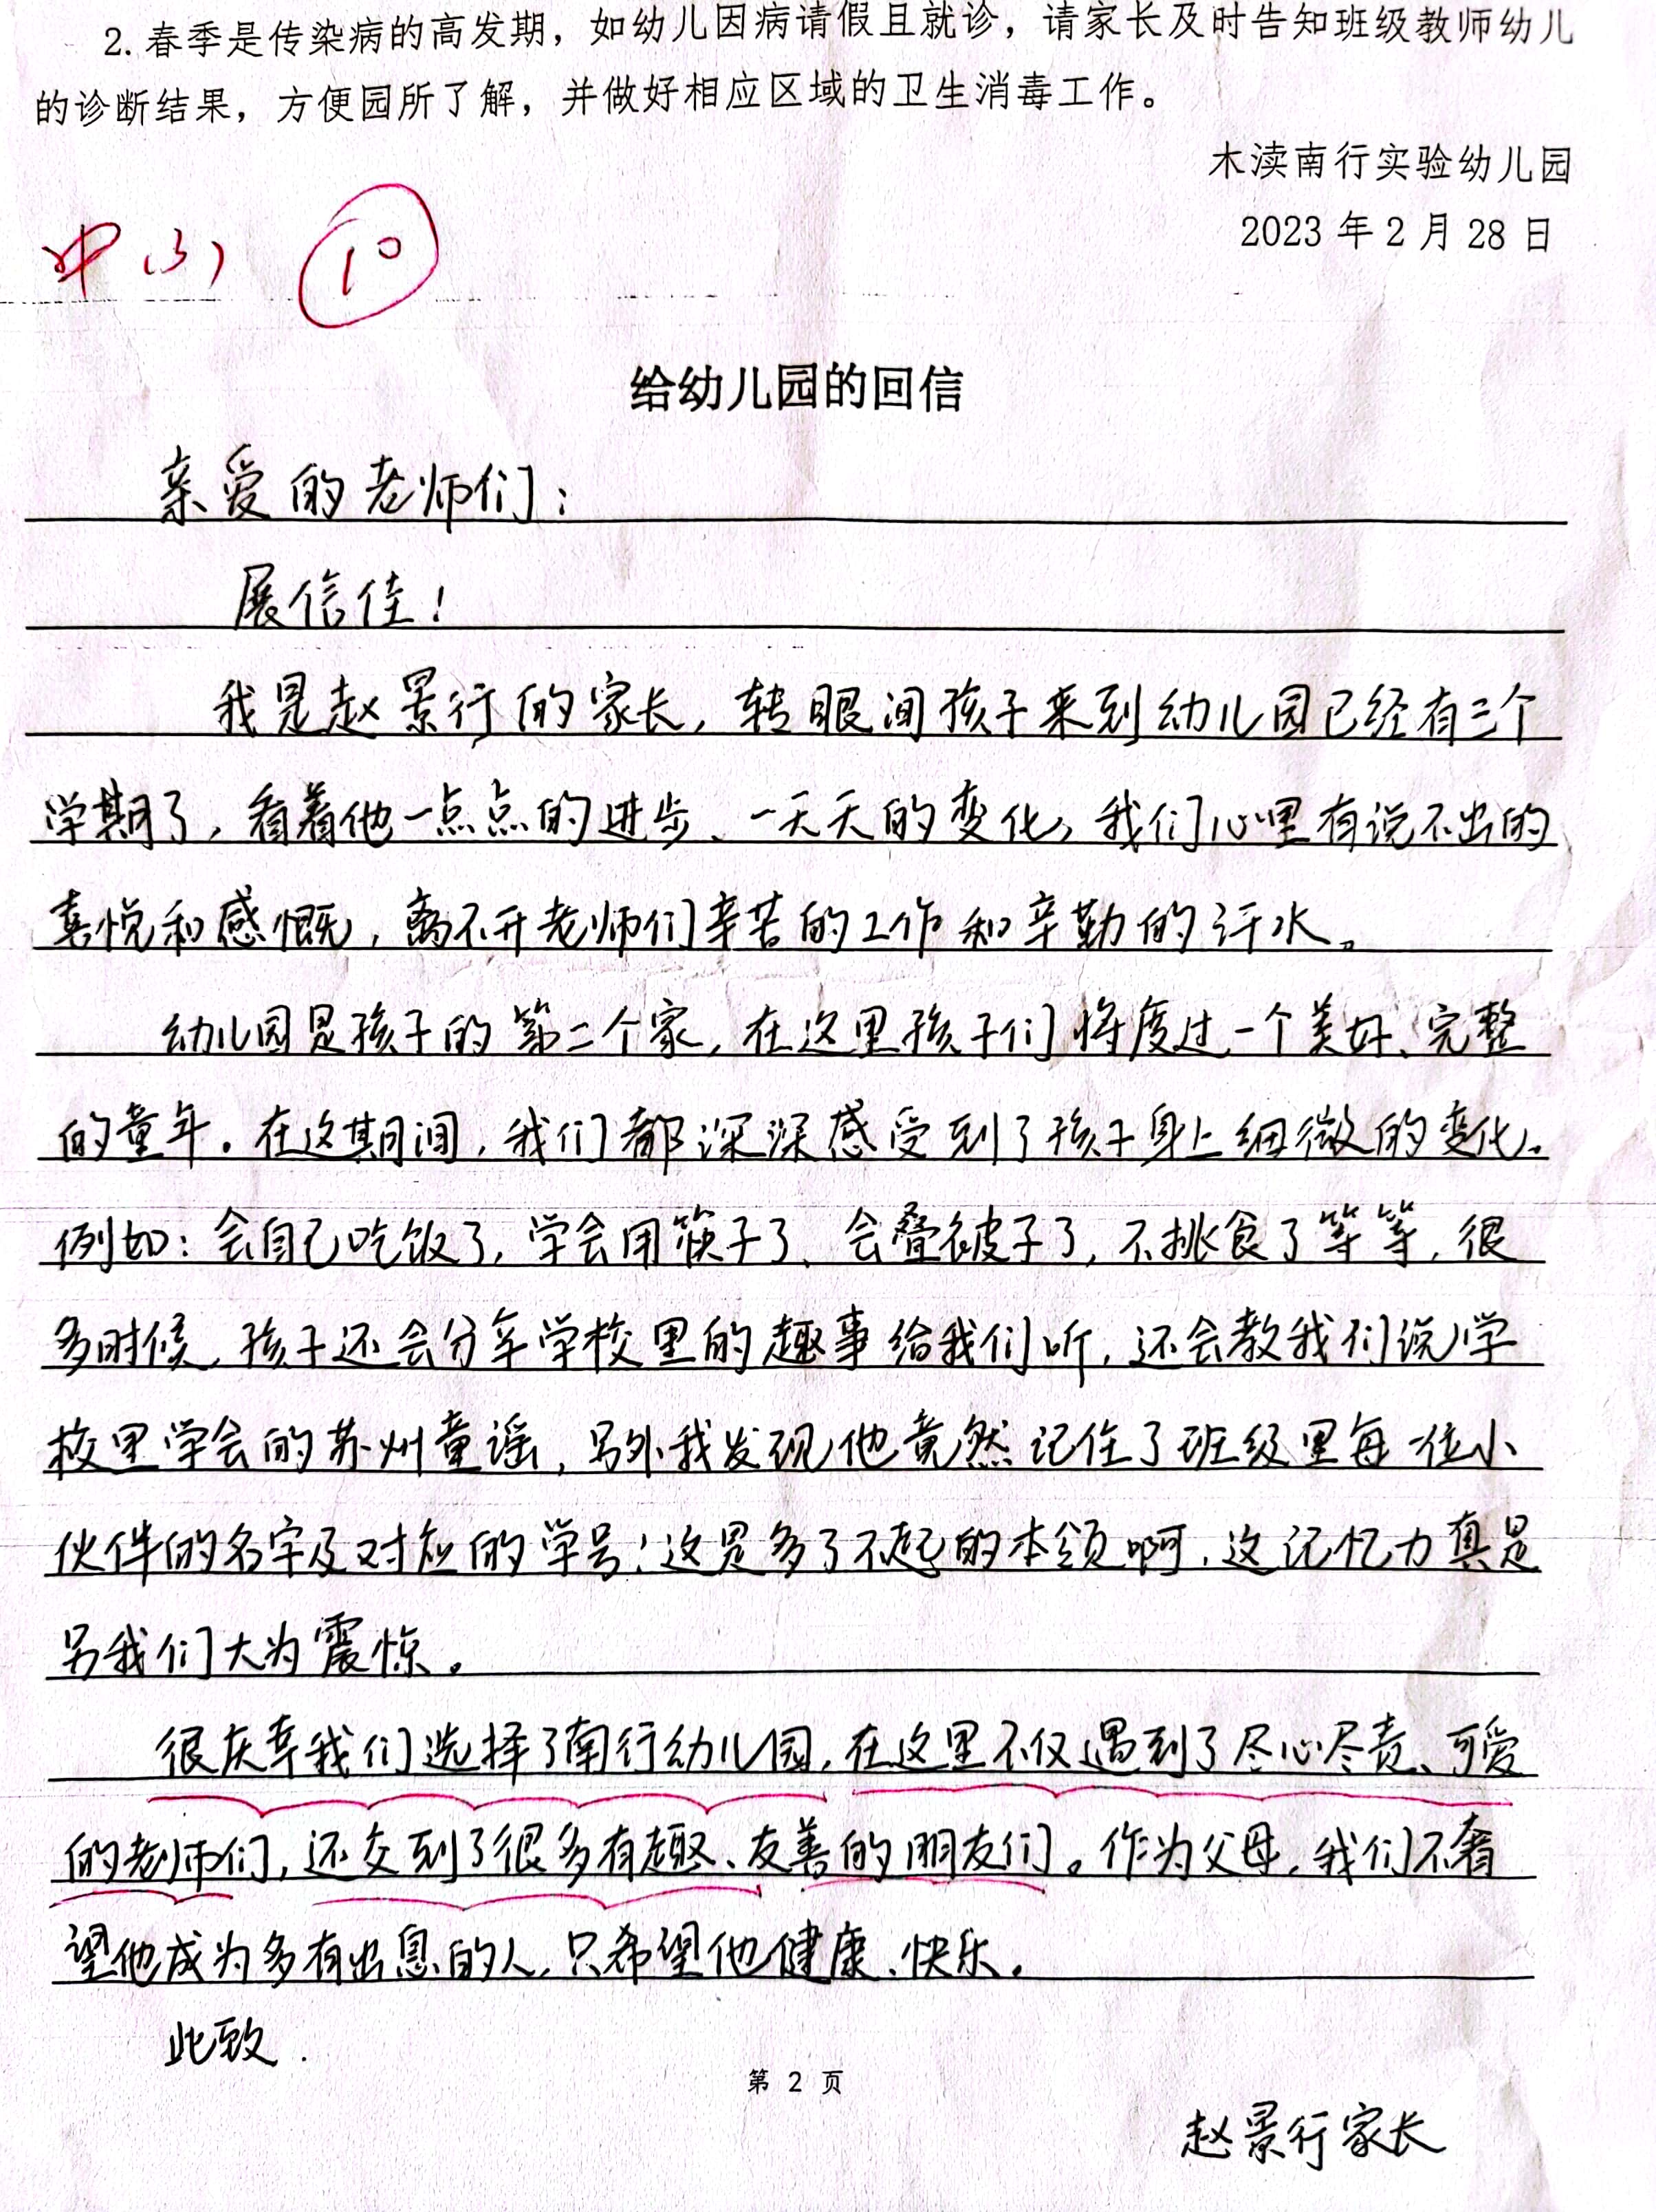 2. 春季是传染病的高发期，如幼儿因病请假且就诊，请家长及时告知班级教师幼儿
的诊断结果，方便园所了解，并做好相应区域的卫生消毒工作。
木渎南行实验幼儿园
2023 年 2 月 28 日
中(3) 10
给幼儿园的回信
亲爱的老师们：
展信佳！
我是赵景行的家长，转眼间孩子来到幼儿园已经有三个
学期了，看着他一点点的进步、一天天的变化，我们心里有说不出的
喜悦和感慨，离不开老师们辛苦的工作和辛勤的汗水。
幼儿园是孩子的第二个家，在这里孩子们将度过一个美好、完整
的童年。在这期间，我们都深深感受到了孩子身上细微的变化。
例如：会自己吃饭了，学会用筷子了、会叠被子了，不挑食了等等，很
多时候，孩子还会分享学校里的趣事给我们听，还会教我们说学
校里学会的苏州童谣，另外我发现他竟然记住了班级里每一位小
伙伴的名字及对应的学号！这是多了不起的本领啊，这记忆力真是
另我们大为震惊。
很庆幸我们选择了南行幼儿园，在这里不仅遇到了尽心尽责、可爱
的老师们，还交到了很多有趣、友善的朋友们。作为父母，我们不奢
望他成为多有出息的人，只希望他健康、快乐。
此致.
第 2 页
赵景行家长